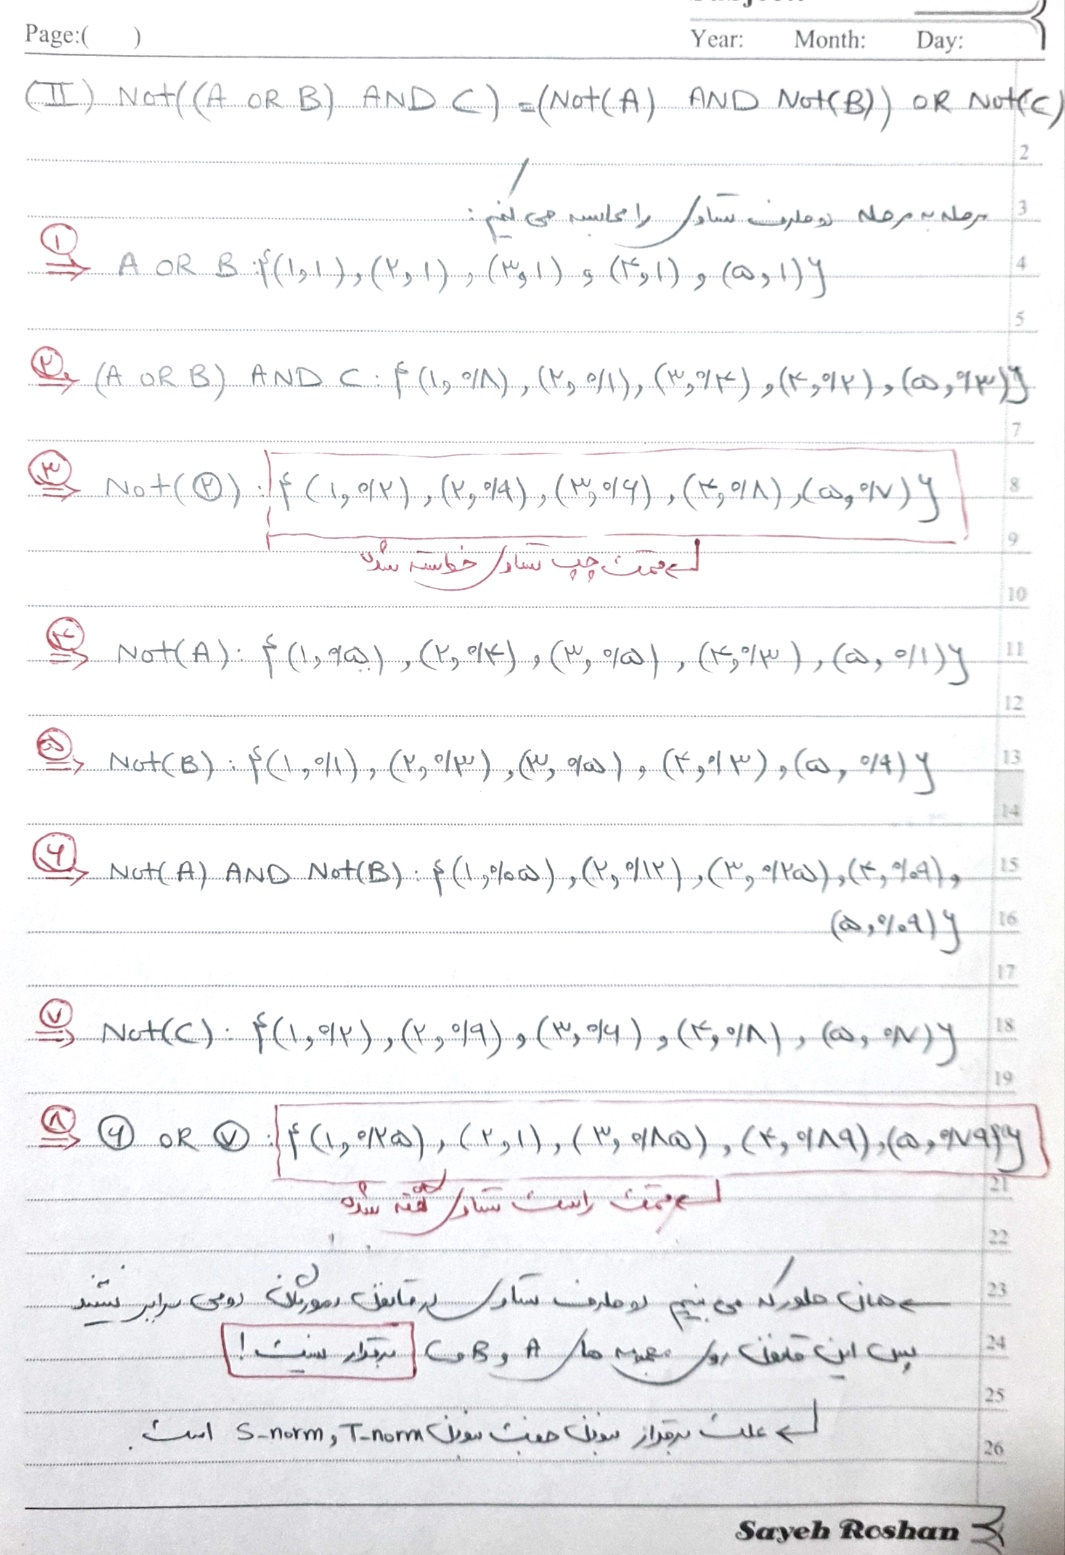 Page:( )
Year: Month: Day:
(II) Not((A OR B) AND C) = (Not(A) AND Not(B)) OR Not(C)
2
مرحله به مرحله دو طرف تساوی را محاسبه می کنیم: 3
۱ ⇒ A OR B : {(۱,۱), (۲,۱), (۳,۱) و (۴,۱), (۵,۱)} 4
5
۲ ⇒ (A OR B) AND C : {(۱, ۰/۸), (۲, ۰/۱), (۳, ۰/۴), (۴, ۰/۲), (۵, ۰/۳)}
7
۳ ⇒ Not(۲) : {(۱, ۰/۲), (۲, ۰/۹), (۳, ۰/۶), (۴, ۰/۸), (۵, ۰/۷)} 8
9
قسمت چپ تساوی خواسته شده
10
۴ ⇒ Not(A) : {(۱, ۰/۵), (۲, ۰/۴), (۳, ۰/۵), (۴, ۰/۳), (۵, ۰/۱)} 11
12
۵ ⇒ Not(B) : {(۱, ۰/۱), (۲, ۰/۳), (۳, ۰/۵), (۴, ۰/۳), (۵, ۰/۹)} 13
14
۶ ⇒ Not(A) AND Not(B) : {(۱, ۰/۰۵), (۲, ۰/۱۲), (۳, ۰/۲۵), (۴, ۰/۰۹), 15
(۵, ۰/۰۹)} 16
17
۷ ⇒ Not(C) : {(۱, ۰/۲), (۲, ۰/۹), (۳, ۰/۶), (۴, ۰/۸), (۵, ۰/۷)} 18
19
۸ ⇒ ۶ OR ۷ : {(۱, ۰/۲۵), (۲, ۱), (۳, ۰/۸۵), (۴, ۰/۸۹), (۵, ۰/۷۹)}
21
قسمت راست تساوی گفته شده
22
← همان طور که می بینیم دو طرف تساوی در قانون دمورگان دومی برابر نیستند 23
پس این قانون روی مجموعه های A و B و C برقرار نیست! 24
25
← علت برقرار نبودن جفت نبودن S-norm, T-norm است.
26
Sayeh Roshan